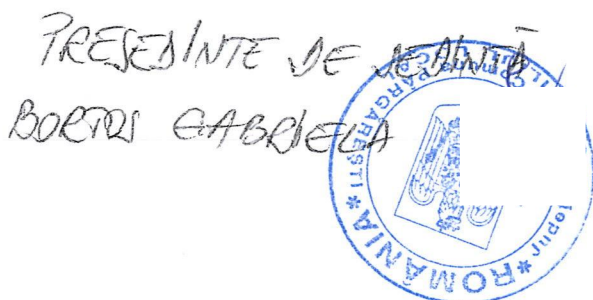 PREȘEDINTE DE ȘEDINȚĂ
BORTOȘ GABRIELA
ROMÂNIA
Județ
PÂRGĂREȘTI